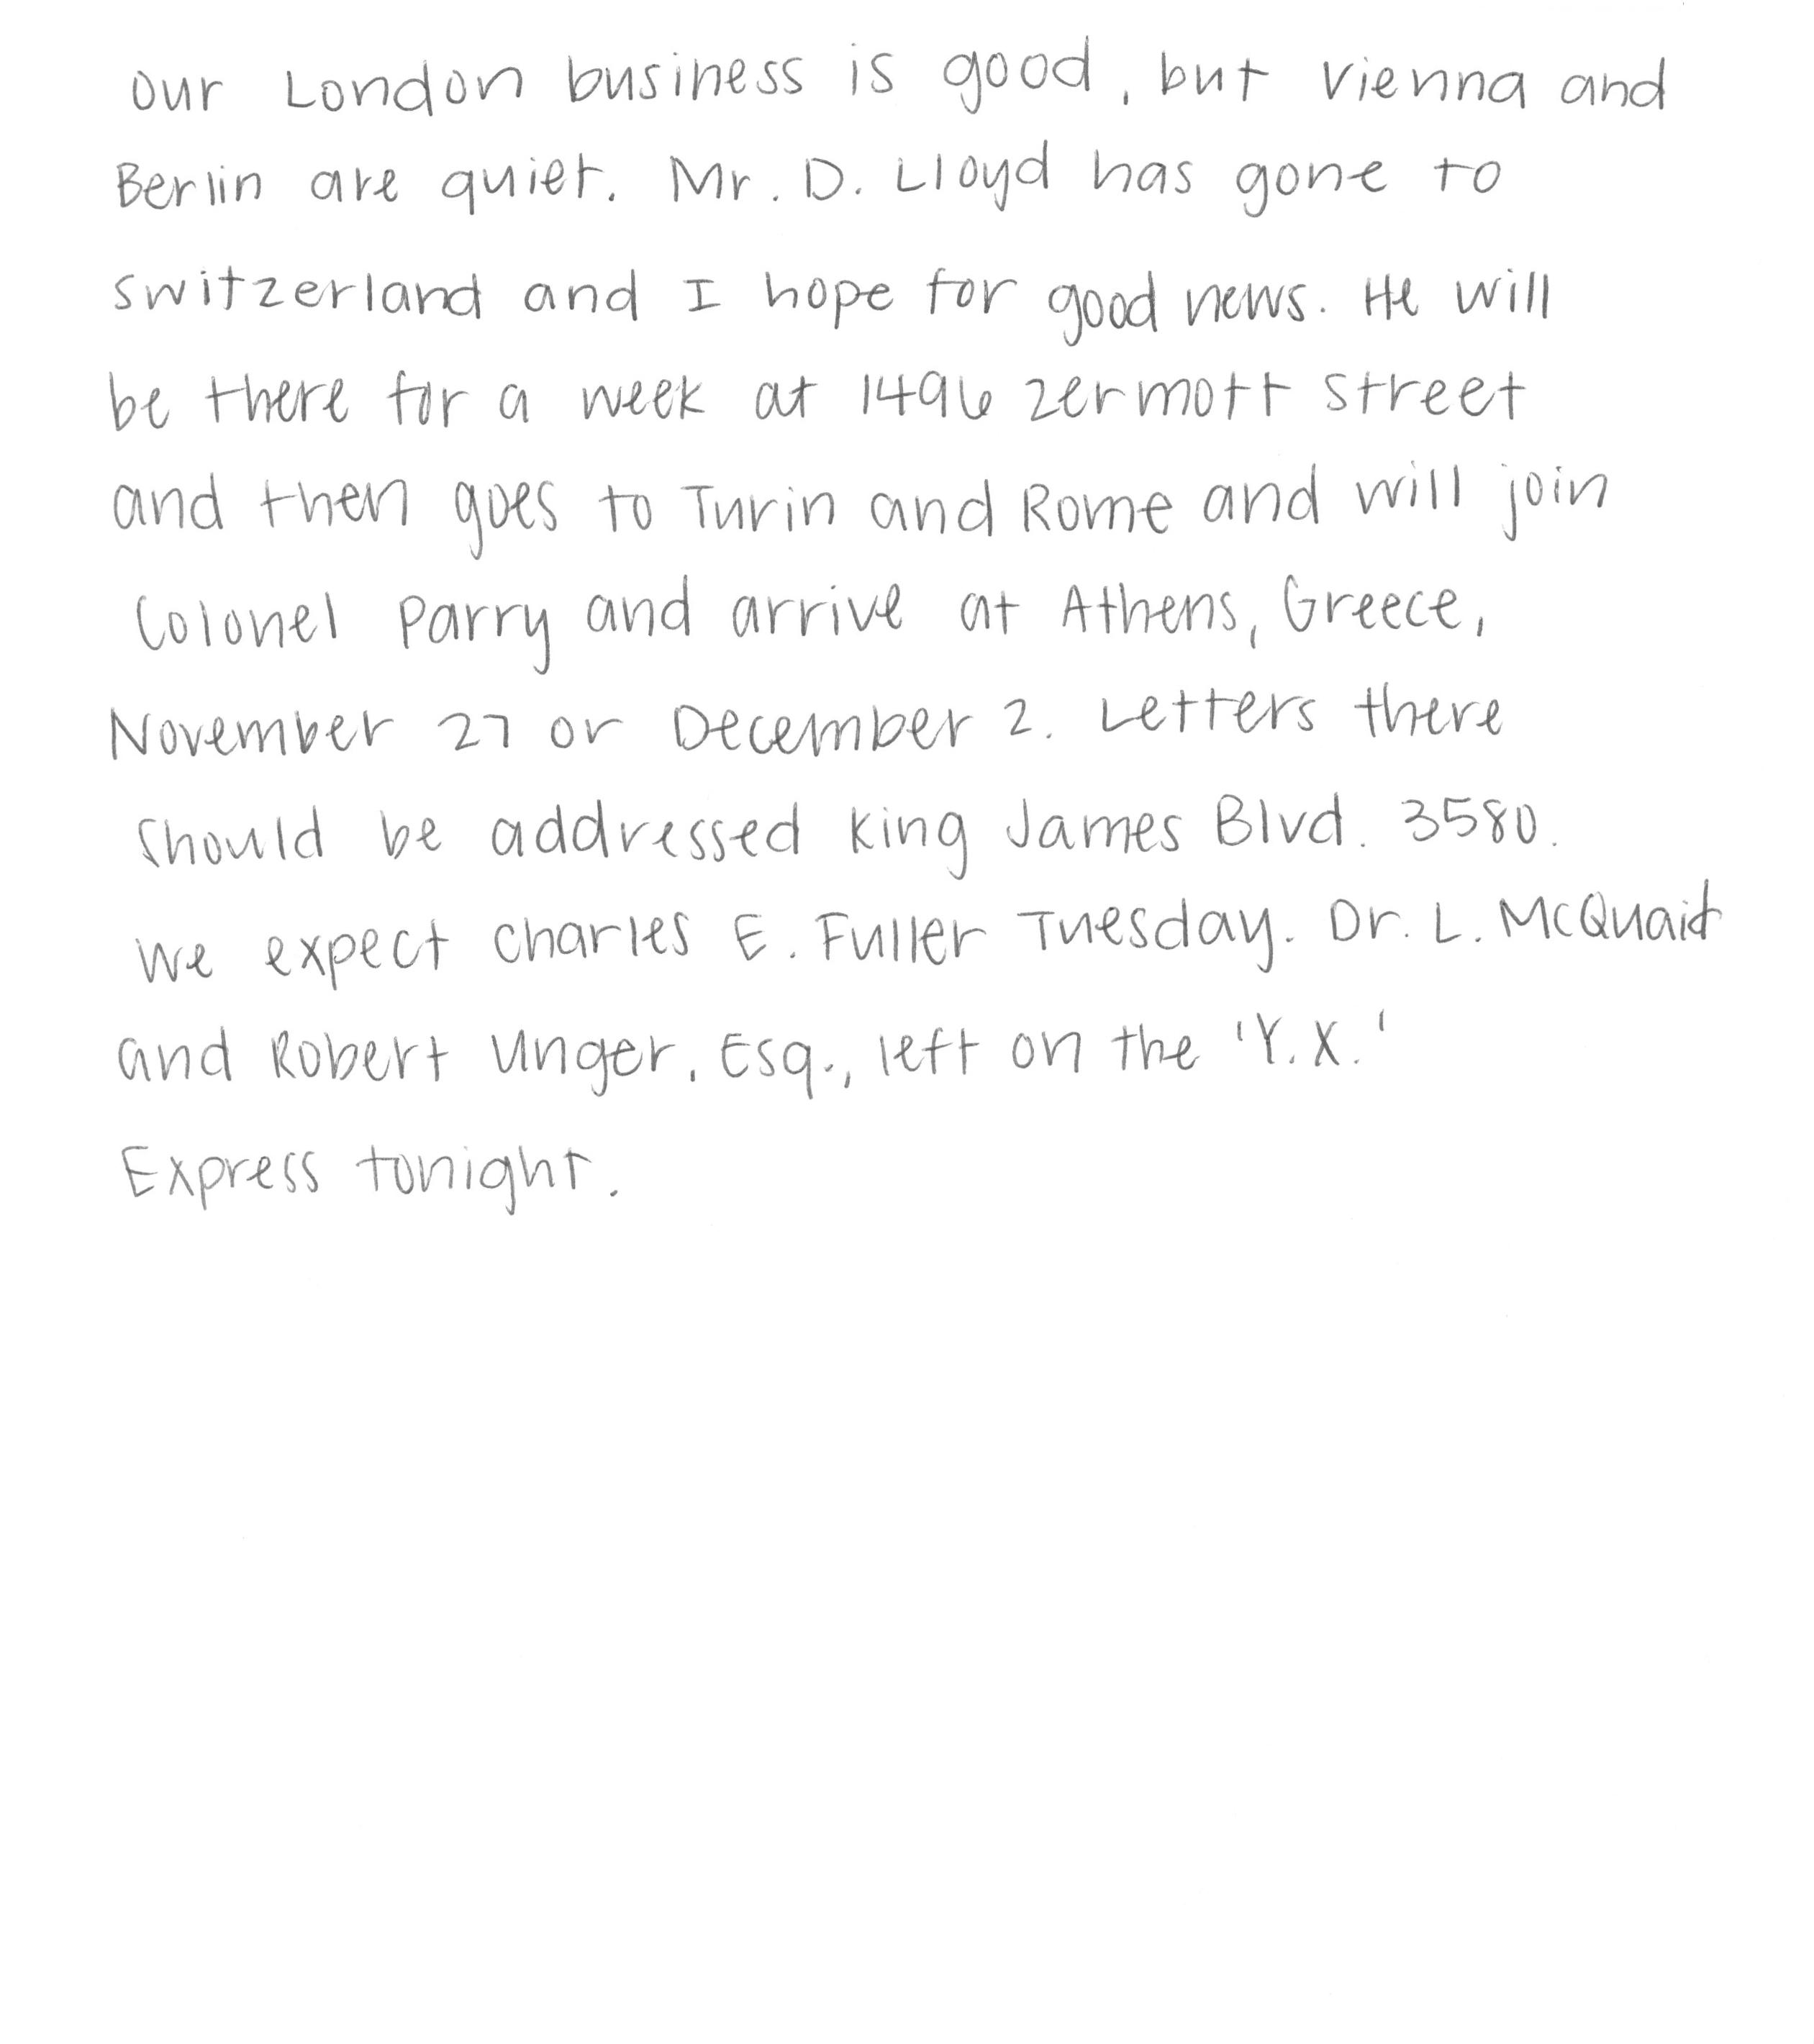 our London business is good, but Vienna and
Berlin are quiet. Mr. D. Lloyd has gone to
Switzerland and I hope for good news. He will
be there for a week at 1496 Zermott Street
and then goes to Turin and Rome and will join
Colonel Parry and arrive at Athens, Greece,
November 27 or December 2. Letters there
should be addressed King James Blvd. 3580.
We expect Charles E. Fuller Tuesday. Dr. L. McQuaid
and Robert Unger, Esq., left on the 'Y.X.'
Express tonight.